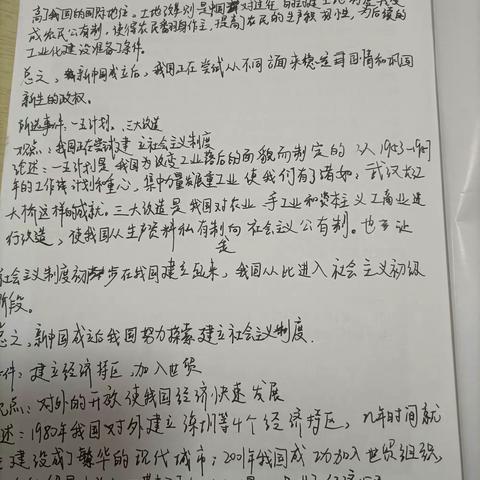 高了我国的国际地位。土地改革则是中国
成农民公有制，使得农民翻身作主，提高了农民的生产积极性，为后续的
工业化建设准备了条件。
总之，新中国成立后，我国正在尝试从不同方面来稳定国情和巩固
新生的政权。
所选事件：一五计划、三大改造
观点：我国正在尝试建立社会主义制度
论述：一五计划是我国为改变工业落后的面貌而制定的从1953-19
年的工作计划和重心，集中力量发展重工业使我们有了诸如：武汉长江
大桥这样的成就。三大改造是我国对农业手工业和资本主义工商业进
行改造，使我国从生产资料私有制向社会主义公有制。也是让
社会主义制度初步在我国建立起来，我国从此进入社会主义初级
阶段。
总之，新中国成立后我国努力探索建立社会主义制度.
件：建立经济特区，加入世贸
观点：对外的开放使我国经济快速发展
述：1980年我国对外建立深圳等4个经济特区，几年时间就
建设成了繁华的现代城市；2001年我国成功加入世贸组织，